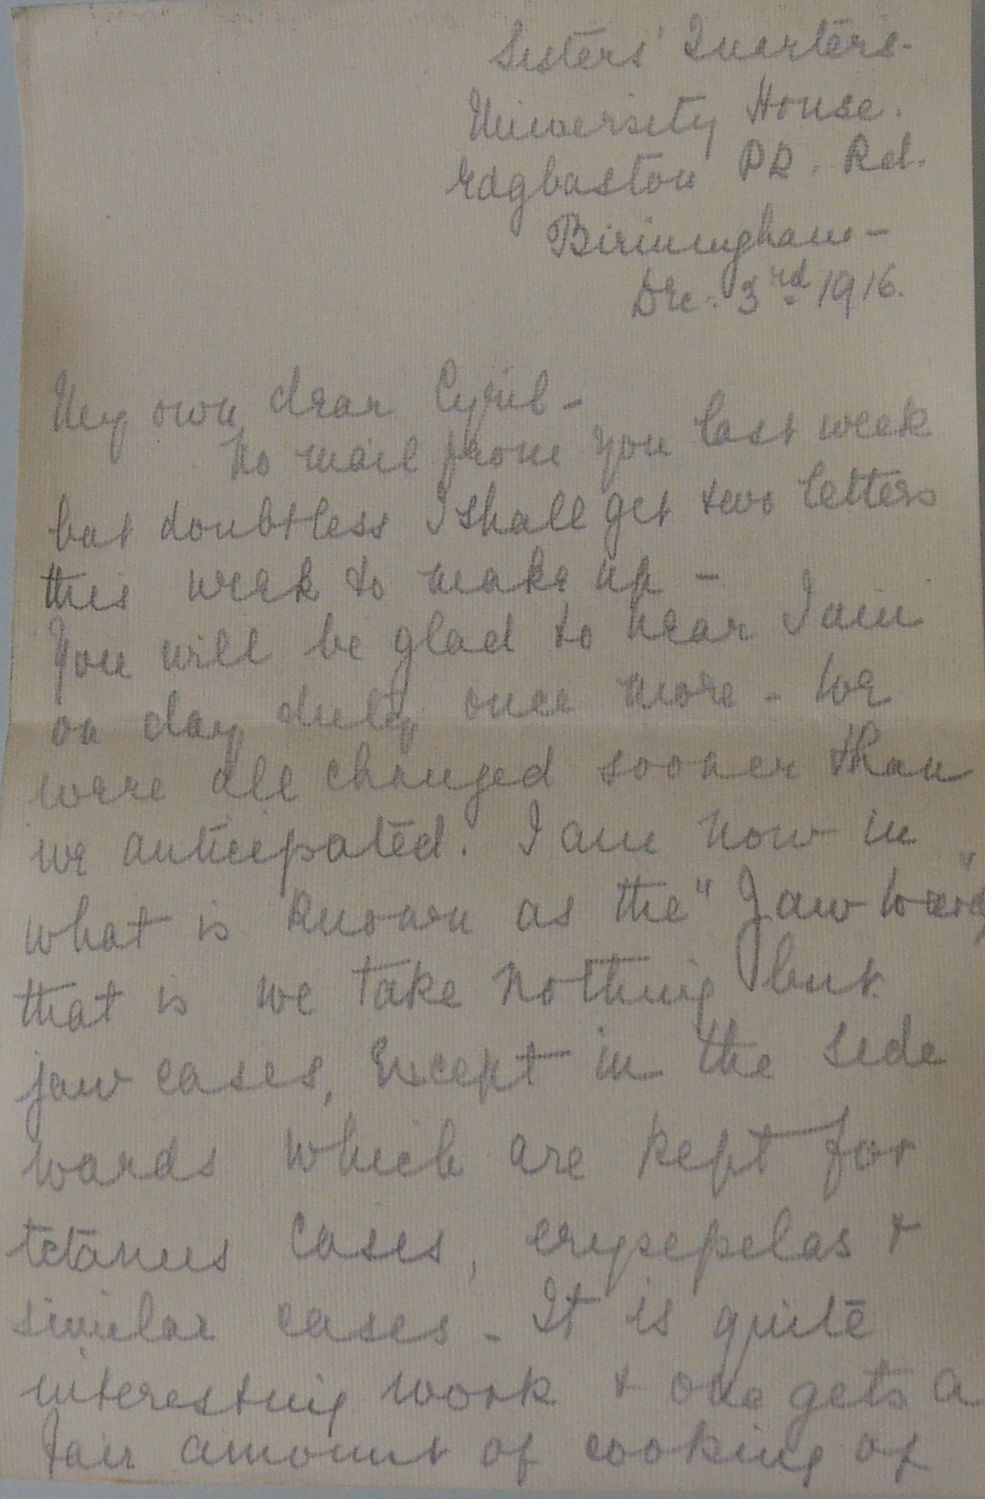 Sisters' Quarters.
University House.
Edgbaston PR. Rd.
Birmingham -
Dec: 3rd 1916.
My own dear Cyril -
No mail from you last week
but doubtless I shall get two letters
this week to make up -
You will be glad to hear I am
on day duty once more - We
were all changed sooner than
we anticipated. I am now in
what is known as the "Jaw Ward"
that is we take nothing but
jaw cases, except in the side
wards which are kept for
tetanus cases, erysepelas &
similar cases - It is quite
interesting work & one gets a
fair amount of cooking of